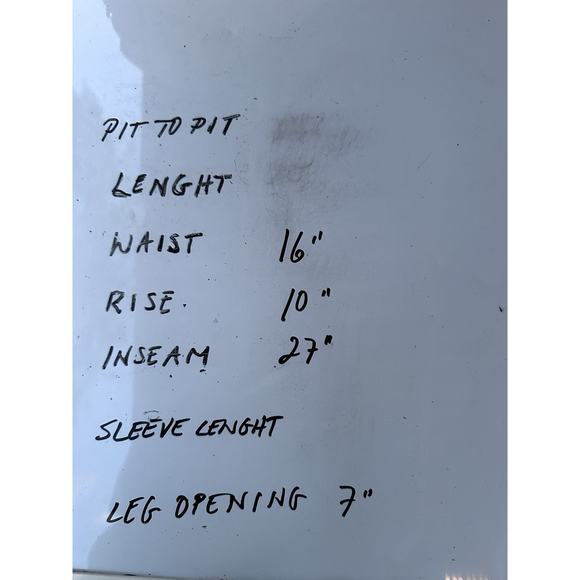 PIT TO PIT
LENGHT
WAIST 16"
RISE. 10"
INSEAM 27"
SLEEVE LENGHT
LEG OPENING 7"